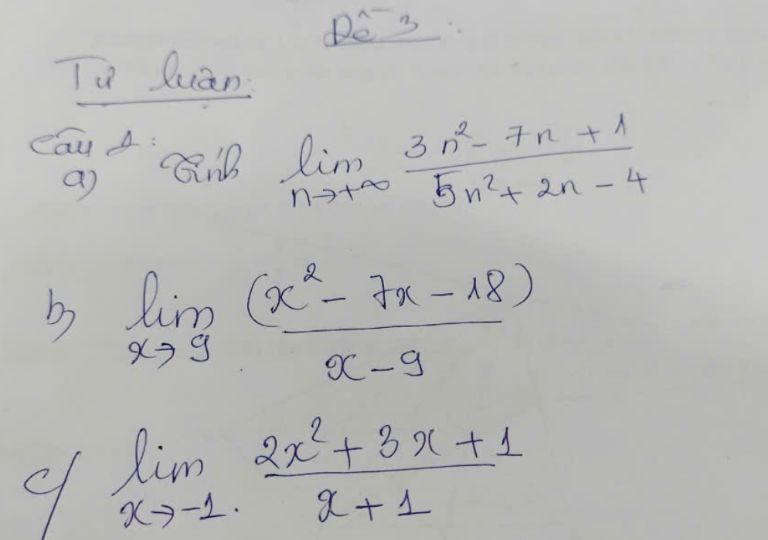 Đề 3:
Tự luận:
Câu 1:
a) Tính lim n→+∞ (3n² - 7n + 1)/(5n² + 2n - 4)
b) lim x→9 (x² - 7x - 18)/(x - 9)
c) lim x→-1. (2x² + 3x + 1)/(x + 1)